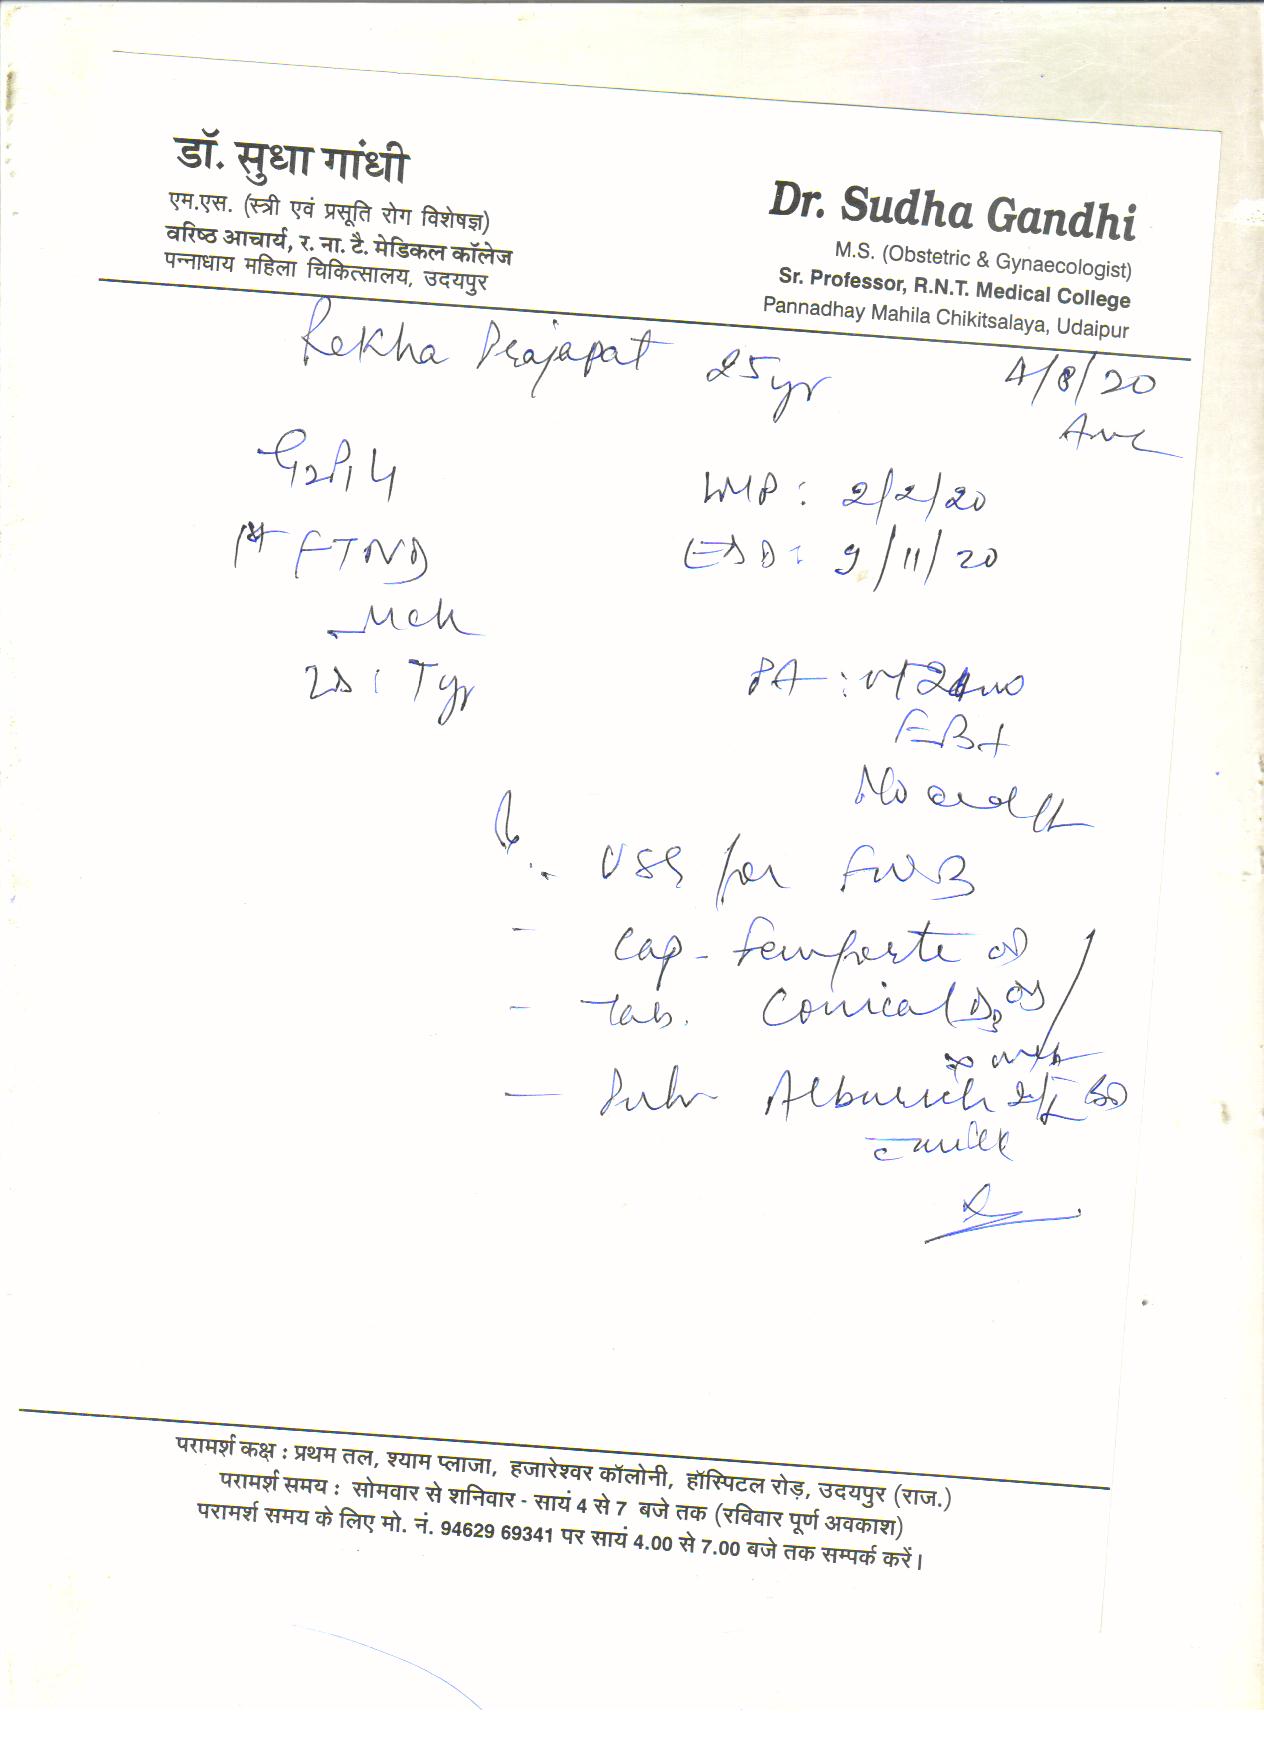 डॉ. सुधा गांधी
एम.एस. (स्त्री एवं प्रसूति रोग विशेषज्ञ)
वरिष्ठ आचार्य, र. ना. टै. मेडिकल कॉलेज
पन्नाधाय महिला चिकित्सालय, उदयपुर
Dr. Sudha Gandhi
M.S. (Obstetric & Gynaecologist)
Sr. Professor, R.N.T. Medical College
Pannadhay Mahila Chikitsalaya, Udaipur
Rekha Prajapat 25yr 4/8/20
G2P1L1
LMP : 2/2/20
1st FTND
EDD : 9/11/20
Mch
PA :
USG for FWB
Cap -
Tab. Comical D3 OD
BD
c milk
परामर्श कक्ष : प्रथम तल, श्याम प्लाजा, हजारेश्वर कॉलोनी, हॉस्पिटल रोड़, उदयपुर (राज.)
परामर्श समय : सोमवार से शनिवार - सायं 4 से 7 बजे तक (रविवार पूर्ण अवकाश)
परामर्श समय के लिए मो. नं. 94629 69341 पर सायं 4.00 से 7.00 बजे तक सम्पर्क करें।